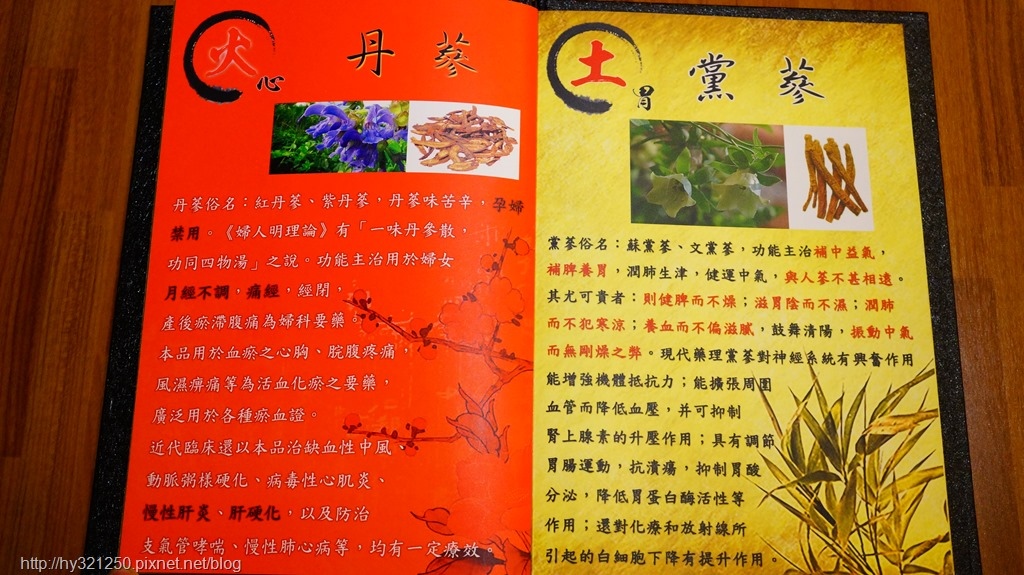 火
心
丹蔘
丹蔘俗名：紅丹蔘、紫丹蔘，丹蔘味苦辛，孕婦
禁用。《婦人明理論》有「一味丹參散，
功同四物湯」之說。功能主治用於婦女
月經不調，痛經，經閉，
產後瘀滯腹痛為婦科要藥。
本品用於血瘀之心胸、脘腹疼痛，
風濕痹痛等為活血化瘀之要藥，
廣泛用於各種瘀血證。
近代臨床還以本品治缺血性中風、
動脈粥樣硬化、病毒性心肌炎、
慢性肝炎、肝硬化，以及防治
支氣管哮喘、慢性肺心病等，均有一定療效。
土
胃
黨蔘
黨蔘俗名：蘇黨蔘、文黨蔘，功能主治補中益氣，
補脾養胃，潤肺生津，健運中氣，與人蔘不甚相遠。
其尤可貴者：則健脾而不燥；滋胃陰而不濕；潤肺
而不犯寒涼；養血而不偏滋膩，鼓舞清陽，振動中氣
而無剛燥之弊。現代藥理黨蔘對神經系統有興奮作用
能增強機體抵抗力；能擴張周圍
血管而降低血壓，并可抑制
腎上腺素的升壓作用；具有調節
胃腸運動，抗潰瘍，抑制胃酸
分泌，降低胃蛋白酶活性等
作用；還對化療和放射線所
引起的白細胞下降有提升作用。
http://hy321250.pixnet.net/blog